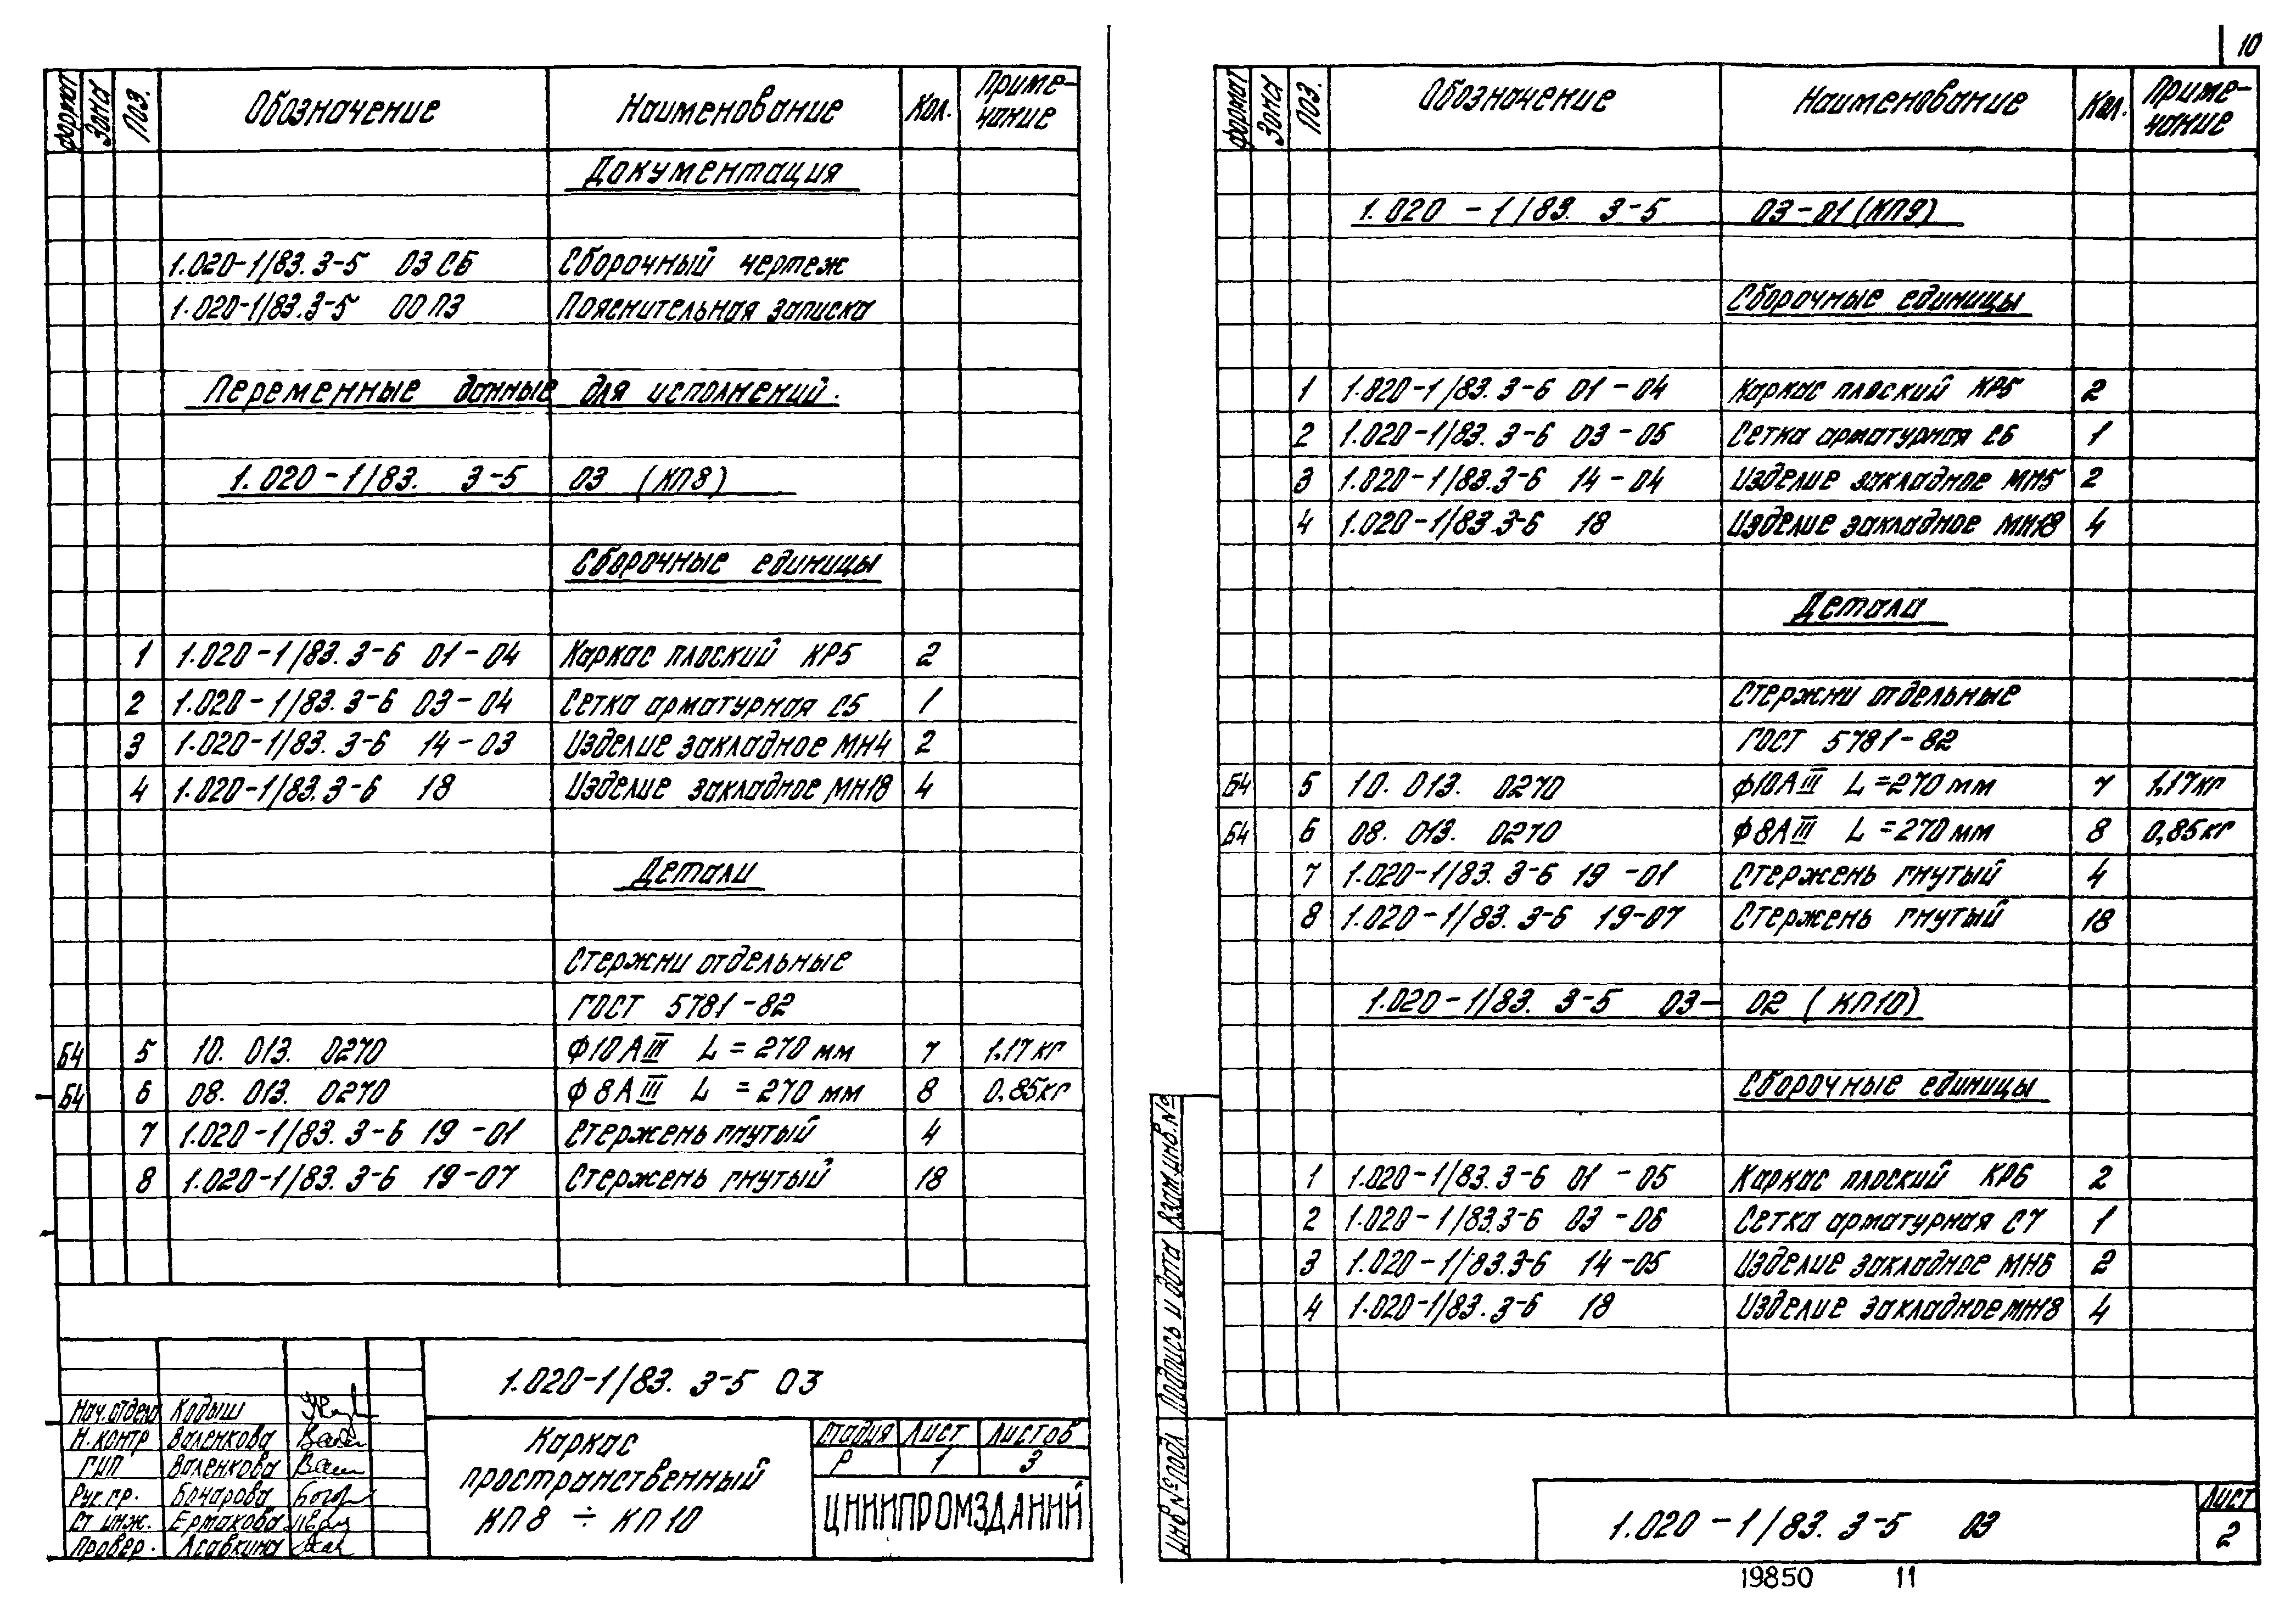 10
формат Зона Поз. Обозначение Наименование Кол. Приме-чание
Документация
1.020-1/83. 3-5 03 СБ Сборочный чертеж
1.020-1/83. 3-5 00 ПЗ Пояснительная записка
Переменные данные для исполнений.
1.020-1/83. 3-5 03 (КП8)
Сборочные единицы
1 1.020-1/83. 3-6 01-04 Каркас плоский КР5 2
2 1.020-1/83. 3-6 03-04 Сетка арматурная С5 1
3 1.020-1/83. 3-6 14-03 Изделие закладное МН4 2
4 1.020-1/83. 3-6 18 Изделие закладное МН18 4
Детали
Стержни отдельные
ГОСТ 5781-82
Б4 5 10. 013. 0270 Ф10АIII L=270 мм 7 1,17 кг
Б4 6 08. 013. 0270 Ф8АIII L=270 мм 8 0,85 кг
7 1.020-1/83. 3-6 19-01 Стержень гнутый 4
8 1.020-1/83. 3-6 19-07 Стержень гнутый 18
1.020-1/83. 3-5 03
Нач. отдела Кодыш
Н. контр Валенкова
ГИП Валенкова
Рук. гр. Бочарова
Ст инж. Ермакова
Провер. Асавкина
Каркас
пространственный
КП8 ÷ КП10
Стадия Лист Листов
Р 1 3
ЦНИИПРОМЗДАНИЙ
формат Зона Поз. Обозначение Наименование Кол. Приме-чание
1.020-1/83. 3-5 03-01 (КП9)
Сборочные единицы
1 1.020-1/83. 3-6 01-04 Каркас плоский КР5 2
2 1.020-1/83. 3-6 03-05 Сетка арматурная С6 1
3 1.020-1/83. 3-6 14-04 Изделие закладное МН5 2
4 1.020-1/83. 3-6 18 Изделие закладное МН18 4
Детали
Стержни отдельные
ГОСТ 5781-82
Б4 5 10. 013. 0270 Ф10АIII L=270 мм 7 1,17 кг
Б4 6 08. 013. 0270 Ф8АIII L=270 мм 8 0,85 кг
7 1.020-1/83. 3-6 19-01 Стержень гнутый 4
8 1.020-1/83. 3-6 19-07 Стержень гнутый 18
1.020-1/83. 3-5 03-02 (КП10)
Сборочные единицы
1 1.020-1/83. 3-6 01-05 Каркас плоский КР6 2
2 1.020-1/83. 3-6 03-06 Сетка арматурная С7 1
3 1.020-1/83. 3-6 14-05 Изделие закладное МН6 2
4 1.020-1/83. 3-6 18 Изделие закладное МН18 4
Взам. инв. №
Подпись и дата
Инв № подл
1.020-1/83. 3-5 03
Лист
2
19850 11